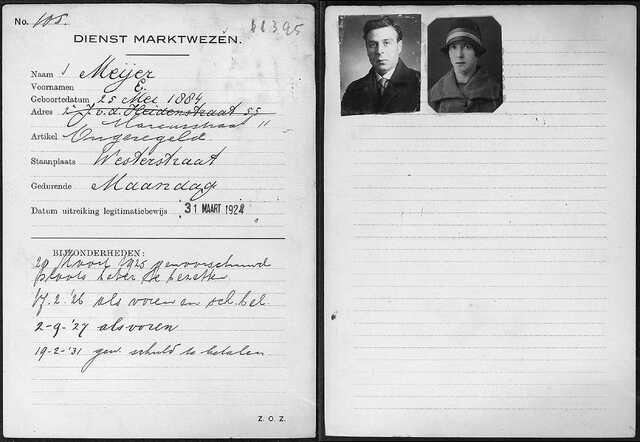 No. 105.
11395
DIENST MARKTWEZEN.
Naam Meijer
Voornamen E.
Geboortedatum 25 Mei 1884
Adres 2e J. v. d. Heidenstraat 55
Marcusstraat 11
Artikel Ongeregeld
Staanplaats Westerstraat
Gedurende Maandag
Datum uitreiking legitimatiebewijs 31 MAART 1924
BIJZONDERHEDEN:
29 Maart 1925 gewaarschuwd
plaats beter te bezetten
17.2.'26 als voren en sch. bet.
2-9-'27 als voren
19-2-'31 gew. schuld te betalen
Z. O. Z.